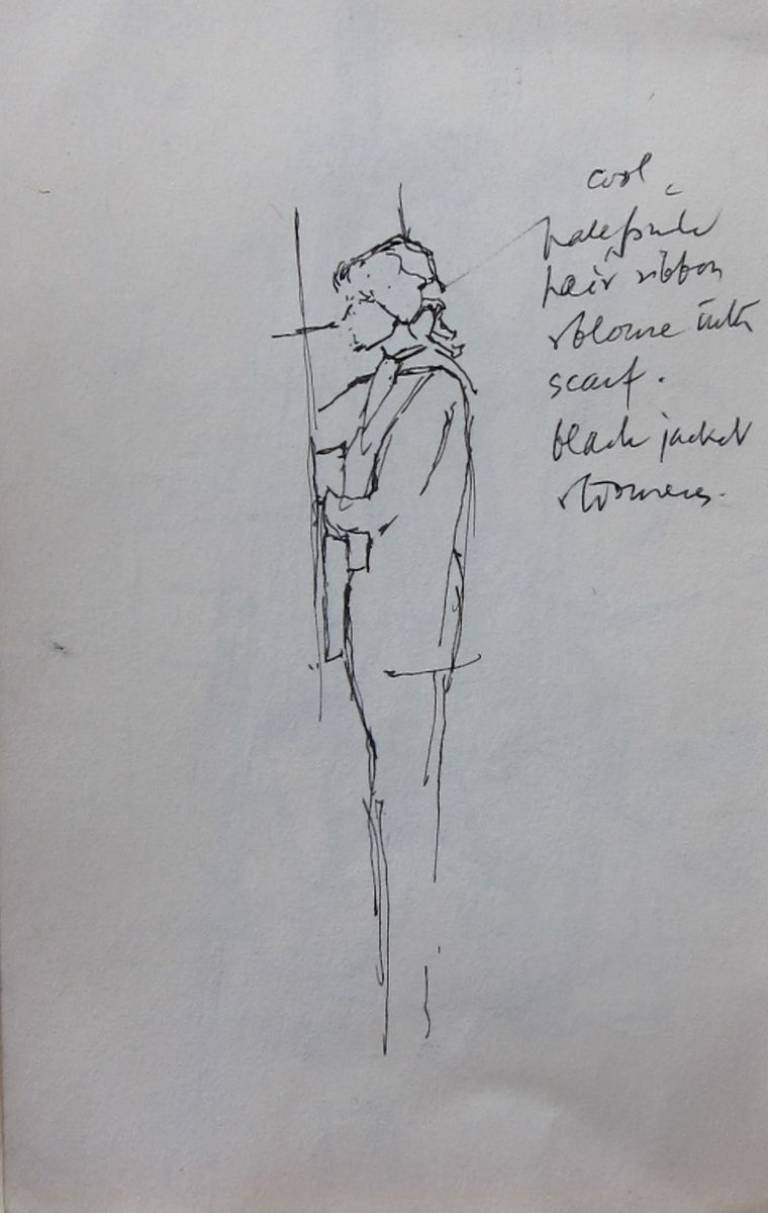 cool
pale pink
hair ribbon
& blouse with
scarf.
black jacket
& trousers.